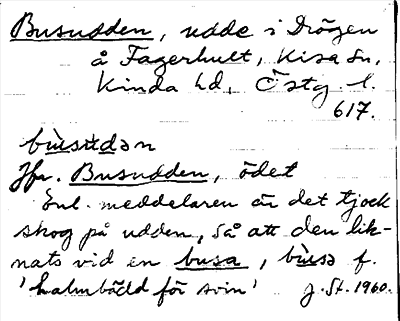 Busudden, udde i Drögen
å Fagerhult, Kisa sn,
Kinda hd, Östg. l.
617.
bùsu̇dən
Jfr. Busudden, ödet
Enl. meddelaren är det tjock
skog på udden, så att den lik-
nats vid en busa, bùsa f.
'halmbädd för svin' J. St. 1960.